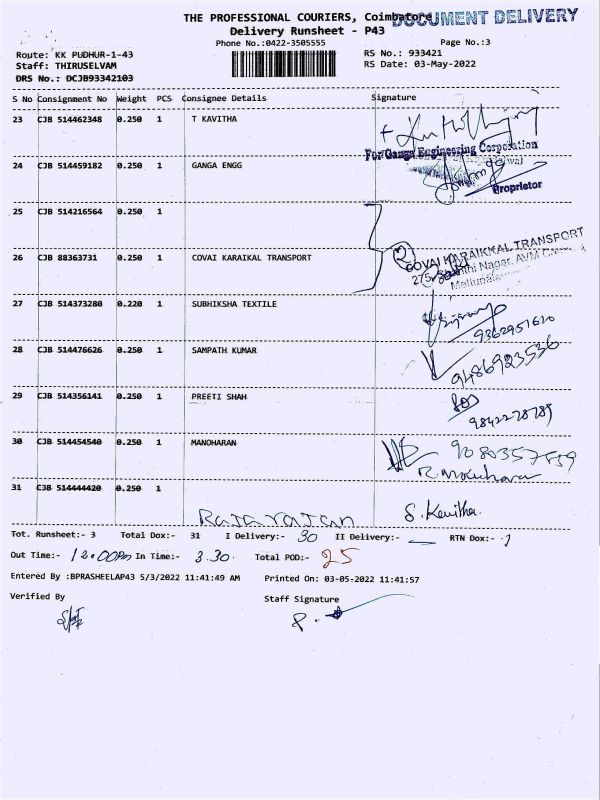 THE PROFESSIONAL COURIERS, Coimbatore
DOCUMENT DELIVERY
Delivery Runsheet - P43
Phone No.:0422-3505555
Page No.:3
Route: KK PUDHUR-1-43
RS No.: 933421
Staff: THIRUSELVAM
RS Date: 03-May-2022
DRS No.: DCJB93342103
S No Consignment No Weight PCS Consignee Details Signature
23 CJB 514462348 0.250 1 T KAVITHA
For Ganga Engineering Corporation
24 CJB 514459182 0.250 1 GANGA ENGG
Proprietor
25 CJB 514216564 0.250 1
COVAI KARAIKKAL TRANSPORT
26 CJB 88363731 0.250 1 COVAI KARAIKAL TRANSPORT
Nagar, AVM
27 CJB 514373280 0.220 1 SUBHIKSHA TEXTILE
9362951610
28 CJB 514476626 0.250 1 SAMPATH KUMAR
9486923536
29 CJB 514356141 0.250 1 PREETI SHAH
9842278789
30 CJB 514454540 0.250 1 MANOHARAN
31 CJB 514444420 0.250 1
Rajarajan S. Kavitha
Tot. Runsheet:- 3 Total Dox:- 31 I Delivery:- 30 II Delivery:- — RTN Dox:- 1
Out Time:- 12.00Pm In Time:- 3.30 Total POD:- 25
Entered By :BPRASHEELAP43 5/3/2022 11:41:49 AM Printed On: 03-05-2022 11:41:57
Verified By Staff Signature